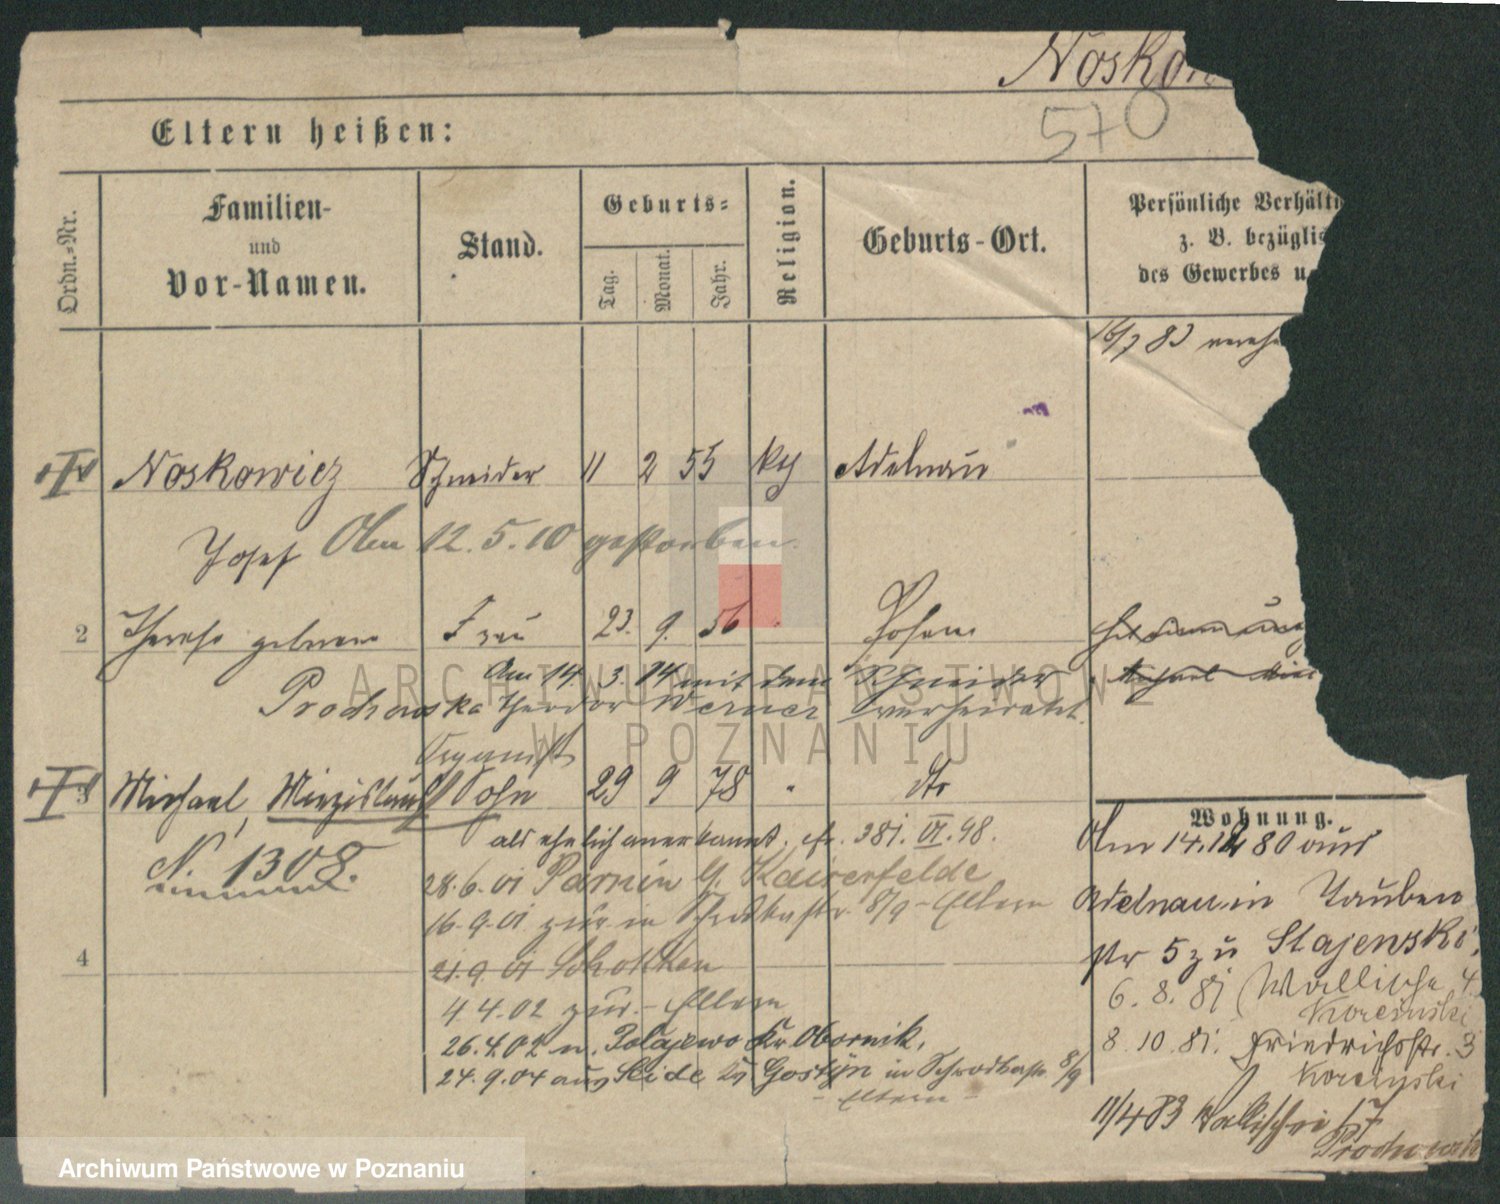 Noskow
570
Eltern heißen:
Ordn.-Nr.
Familien-
und
Vor-Namen.
Stand.
Geburts-
Tag.
Monat.
Jahr.
Religion.
Geburts-Ort.
Persönliche Verhält
z. B. bezüglis
des Gewerbes u
16/7 83 vereh
Noskowicz Schneider 11 2 55 kth Adelnau
Josef Am 12.5.10 gestorben.
2 Therese geborene Frau 23. 9. 56 " Posen
Am 14. 3. 14 mit dem Schneider
Prochowska Theodor Werner verheiratet.
Organist
3 Michael, Miezislaus Sohn 29 9 78 " dto
als ehelich anerkannt. cfr. 381. VI. 98.
N. 1308.
28.6.01 Parnin G. Kaiserfelde
16.9.01 zur. in Schrodkastr. 8/9 - Eltern
4
21.9.01 Schokken
4.4.02 zur. - Eltern
26.4.02 n. Polajewo Kr. Obornik.
24.9.04 aus Seide Kr Gostyn in Schrodkastr. 8/9
- Eltern -
Wohnung.
Am 14.12 80 aus
Adelnau in Tauben
str 5 zu Stajenski.
6. 8. 81 Wallische 4.
Korcinski
8. 10. 81. Friedrichstr. 3
Korcinski
11/4 83 Wallischei 17
Prochowsk
ARCHIWUM PAŃSTWOWE
W POZNANIU
Archiwum Państwowe w Poznaniu